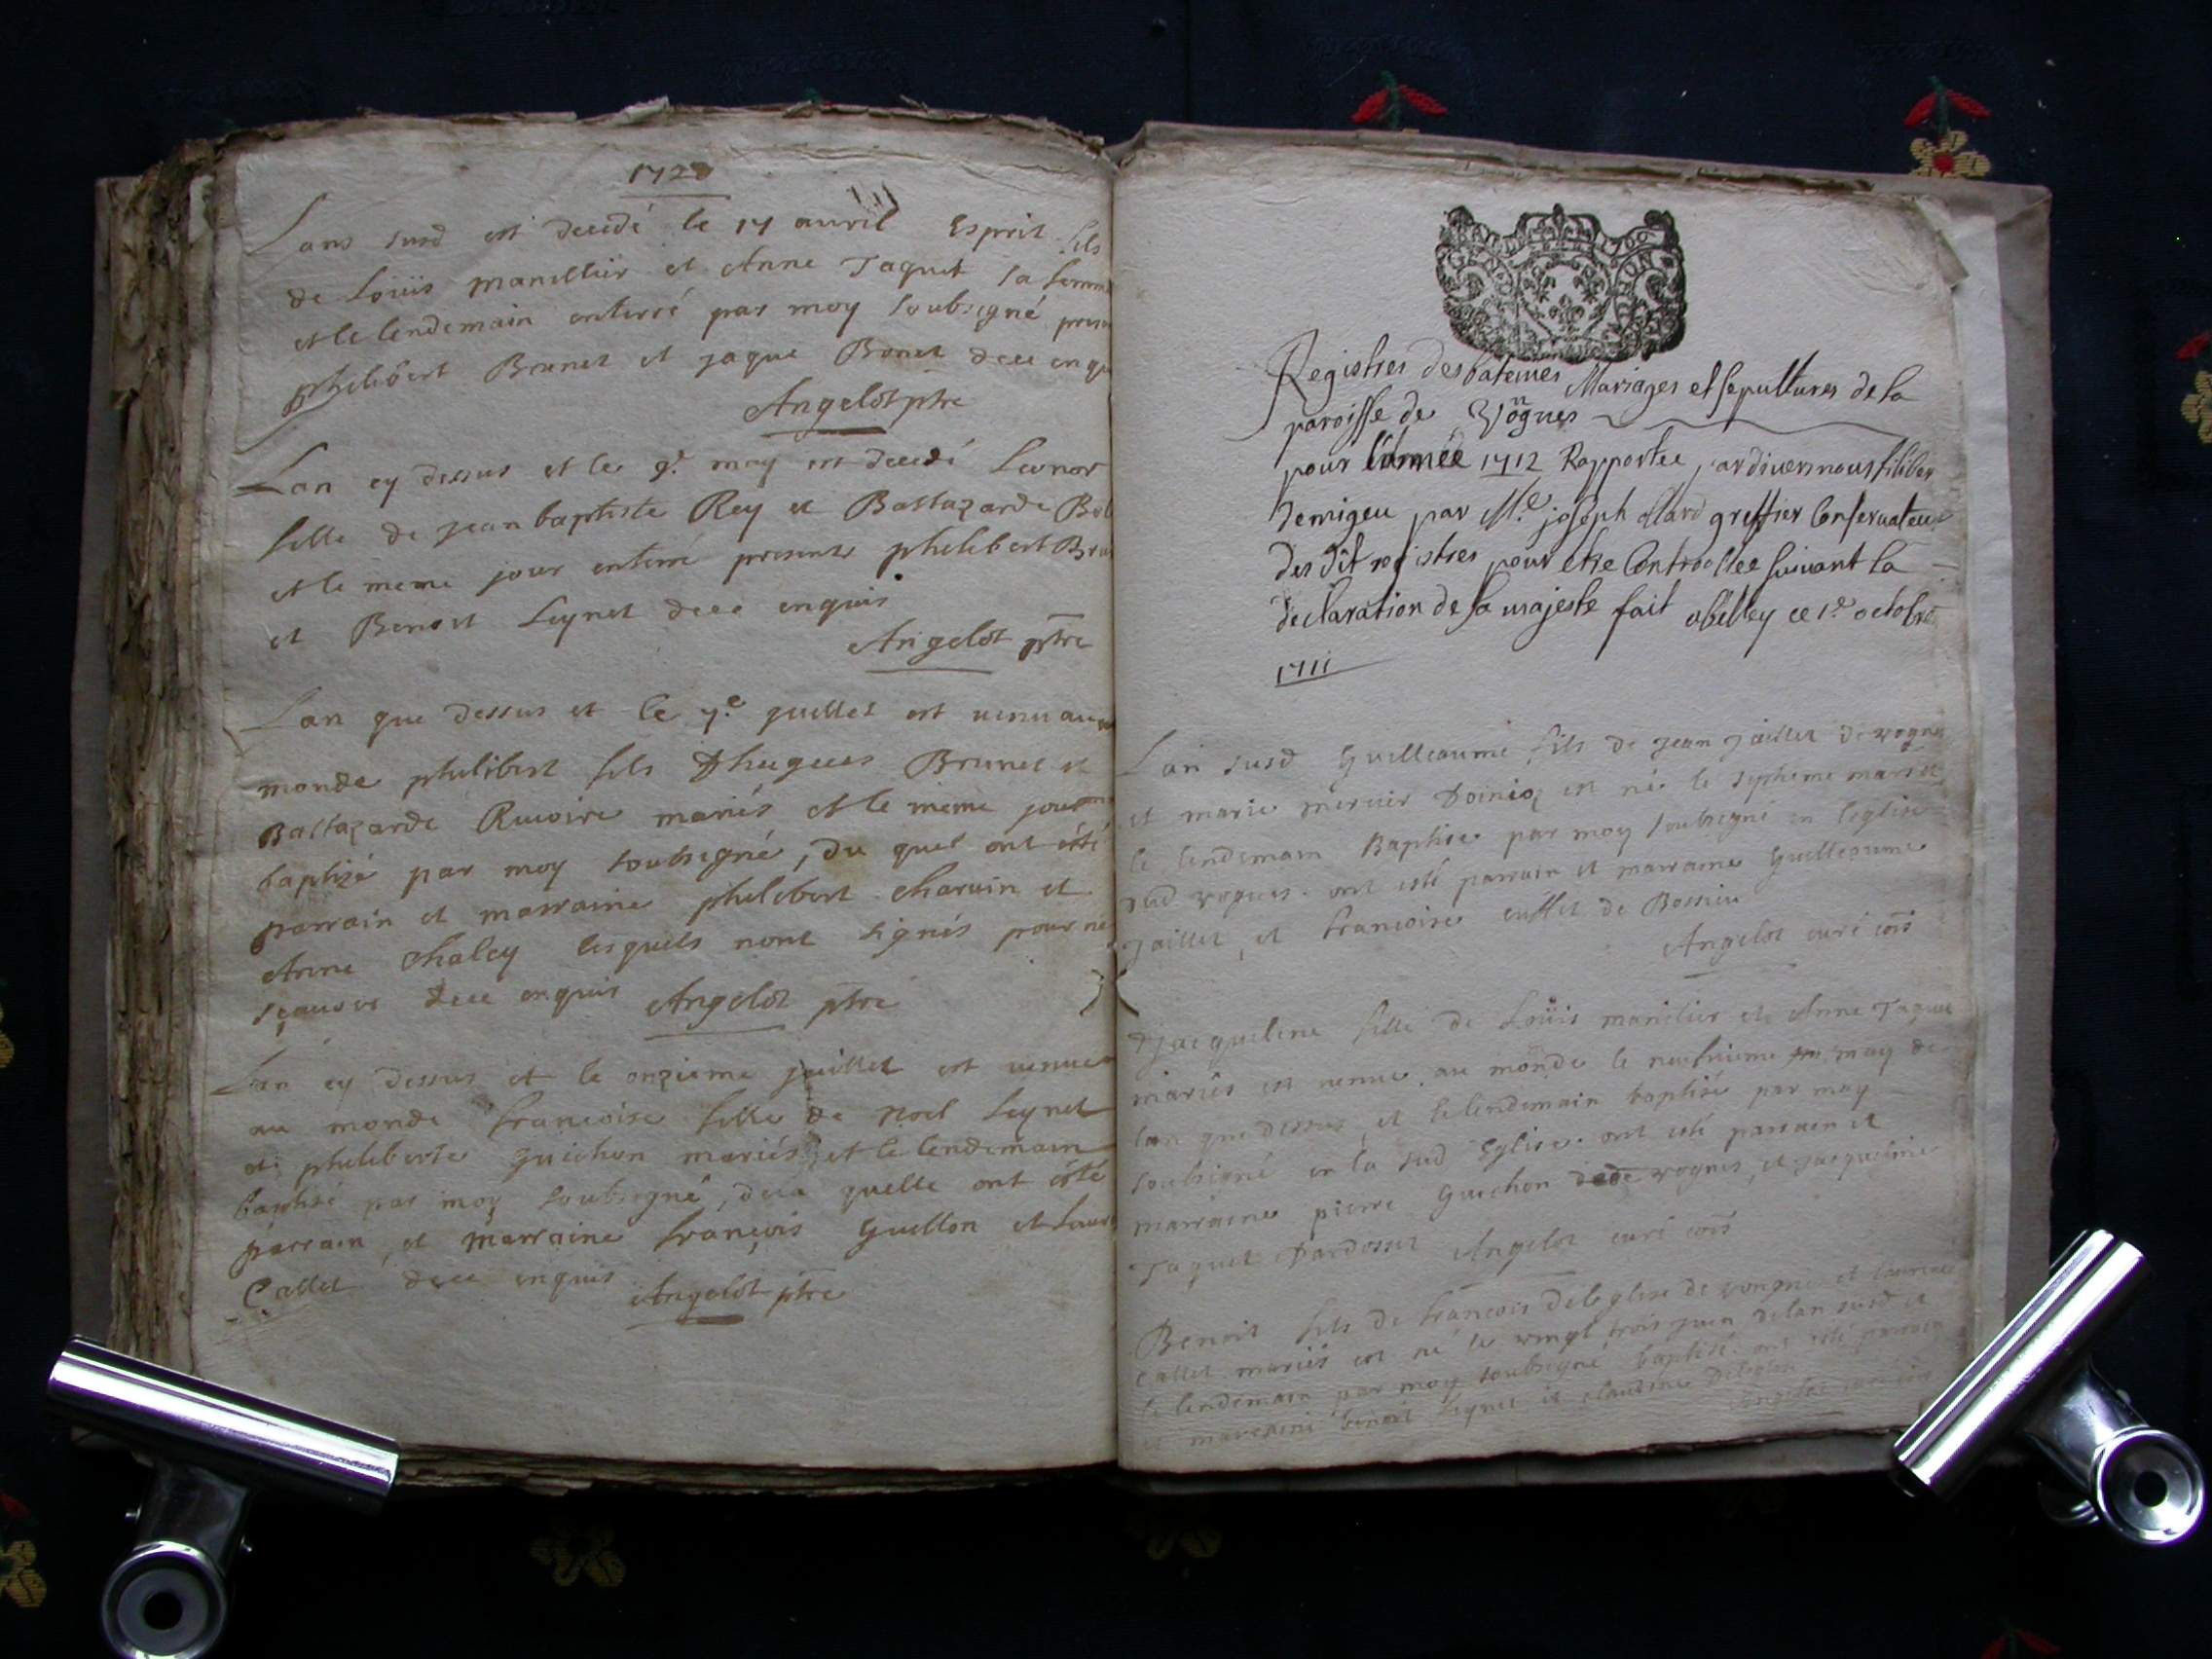 1720
Lans susd est decedé le 17 avvril Esprit fils
de Loüis manillier et Anne Jaquet sa femm
et le lendemain enterré par moy soubsigné presen
philibert Brunet et jaque Bonet dece enqu
Angelot ptre
Lan cy dessus et le 9.e may est decedé Leonor
fille de jean baptiste Rey et Baltazarde Bol
et le meme jour enterré presents philibert Bru
et Benoit Leynet dece enquis
Angelot ptre
Lan que dessus et le 7.e juillet est venu au
monde philibert fils Dhugues Brunet et
Baltazarde Ruivoire mariés et le meme jour
baptizé par moy soubsigné, du quel ont ésté
parrain et marraine philibert charvin et
Anne Chaley lesquels nont signés pour ne
sçauoir dece enquis Angelot ptre
Lan cy dessus et le onzieme juillet est venue
au monde francoise fille de Noel Leynet
et philiberte guichon mariés et le lendemain
baptisé par moy soubsigné, de la quelle ont ésté
parrain et marraine françois Guillon et Laur
Callet dece enquis Angelot ptre
GEND 1709
Registres des batemes Mariages et sepultures de la
paroisse de Vognes
pour l'année 1712 Rapportee pardivers nous filiber
Demigeu par Me. joseph Alard greffier Conservateur
des dit registres pour etre Controollee suivant la
declaration de sa majeste fait abelley ce 1.e octobre
1711
Lan susd Guilleaume fils de jean jaillet de vognes
et marie mercier Doincz est né le septieme mars et
le lendemain Baptise par moy soubsigné en leglise
dud vognes. ont esté parrain et marraine Guilleaume
jaillet, et francoise cullet de Bossieu
Angelot curé
Jacqueline fille de Loüis manilier et Anne Jaquet
mariés est venue au monde le neufvieme may de
lan que dessus, et le lendemain baptisé par moy
soubsigné en la sud Eglise. ont esté parrain et
marraine pierre Guichon de vognes, et jacqueline
Jaquet Dardosset Angelot curé
Benoit fils de francois deleglise de vongne et laurence
Callet mariés est né le vingt trois juin delan susd et
le lendemain par moy soubsigné baptisé. ont esté parrain
et marraine benoit Leynet et claudine Deleglise
Angelot curé